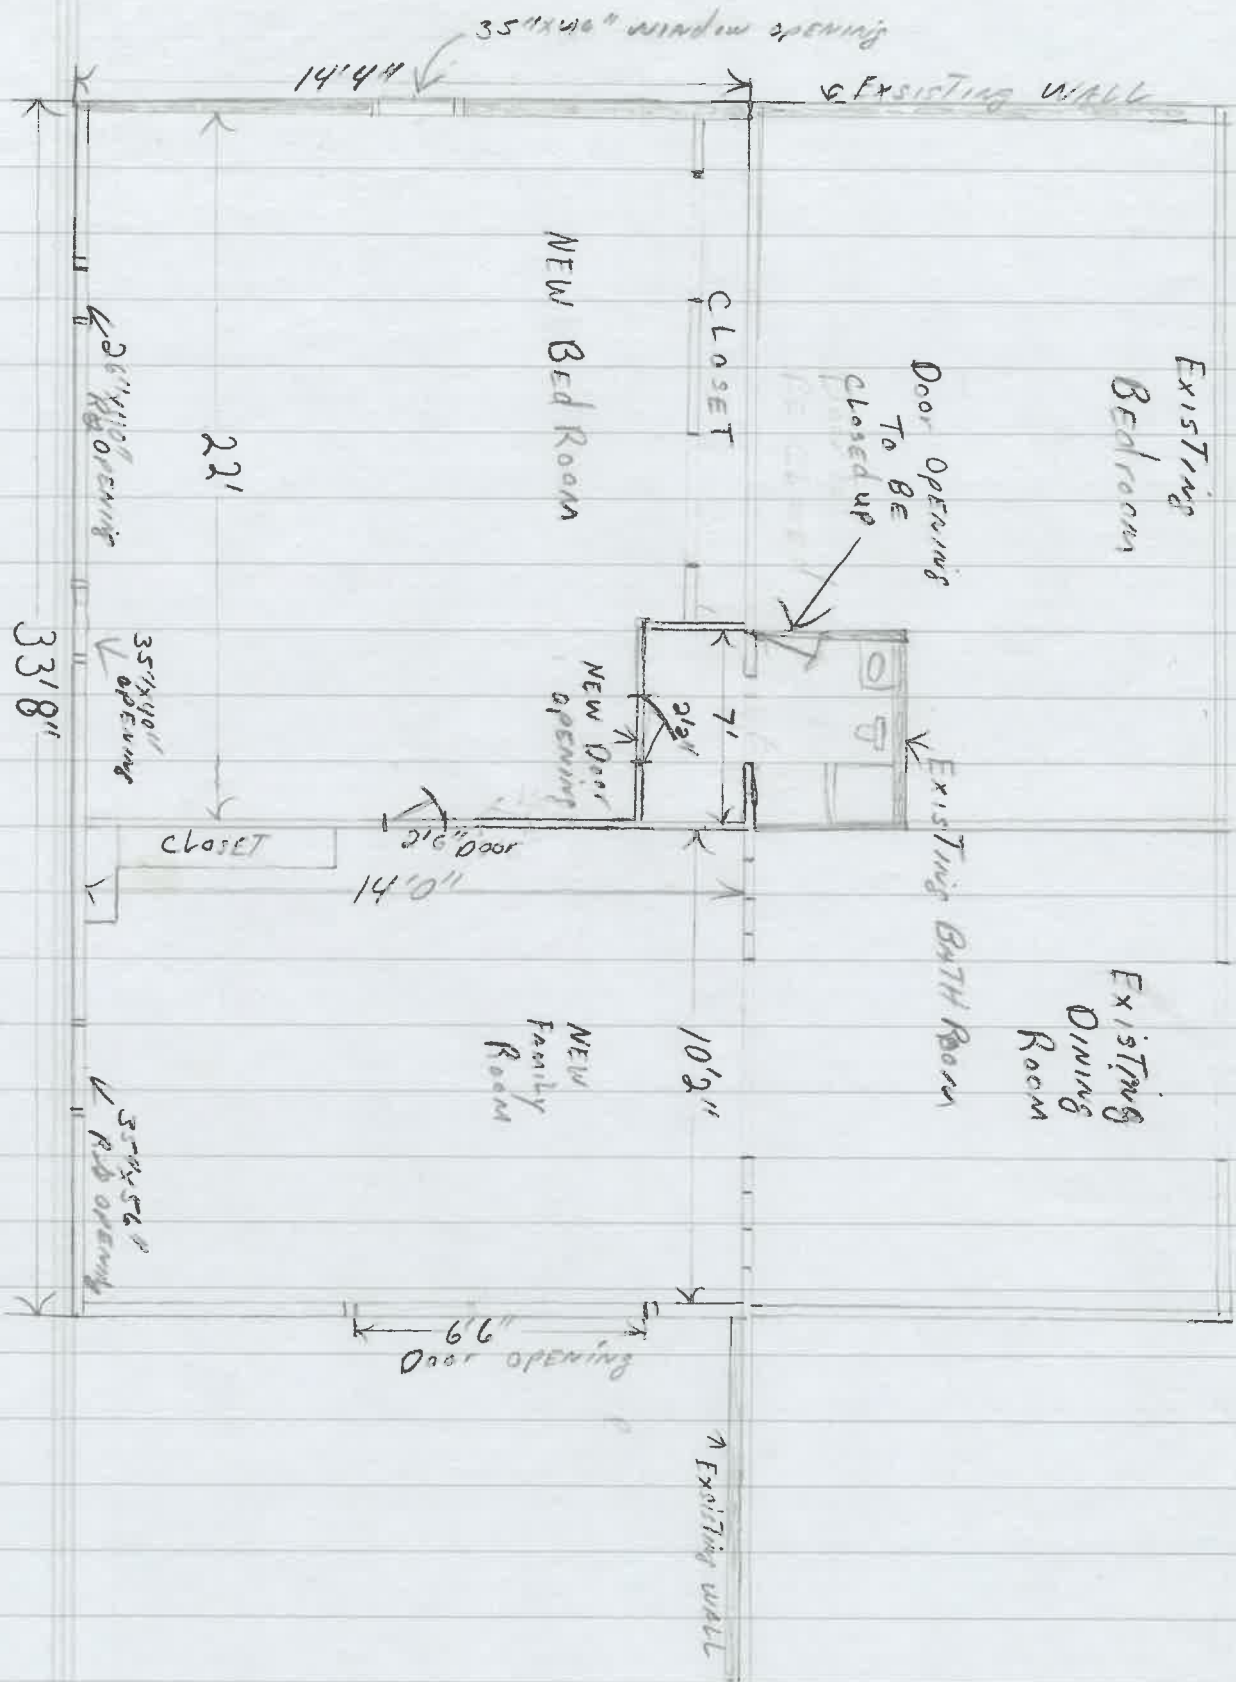 35"x40" WINDOW OPENING
14'4"
EXSISTING WALL
EXISTING
BEDROOM
DOOR OPENING
TO BE
CLOSED UP
CLOSET
NEW BED ROOM
22'
OPENING
35"x40"
OPENING
33'8"
NEW DOOR
OPENING
7'
EXISTING BATH ROOM
CLOSET
DOOR
14'0"
EXISTING
DINING
ROOM
10'2"
NEW
FAMILY
ROOM
35"x56"
OPENING
6'6"
DOOR OPENING
EXSISTING WALL